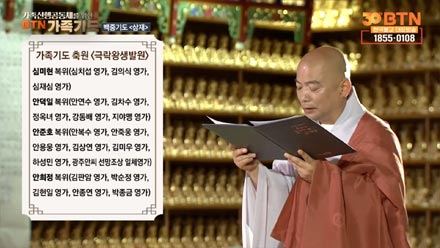 가족신행공동체를 위한
BTN 가족기도
백중기도 <삼재>
30 BTN
1855-0108
가족기도 축원 <극락왕생발원>
심미현 복위(심치섭 영가, 김의식 영가,
심재심 영가)
안덕일 복위(안연수 영가, 김차수 영가,
정옥녀 영가, 강동배 영가, 지아행 영가)
안준호 복위(안복수 영가, 안죽웅 영가,
안용웅 영가, 김삼연 영가, 김미우 영가,
하성민 영가, 광주안씨 선망조상 일체영가)
안희정 복위(김판암 영가, 박순정 영가,
김현일 영가, 안종연 영가, 박종금 영가)